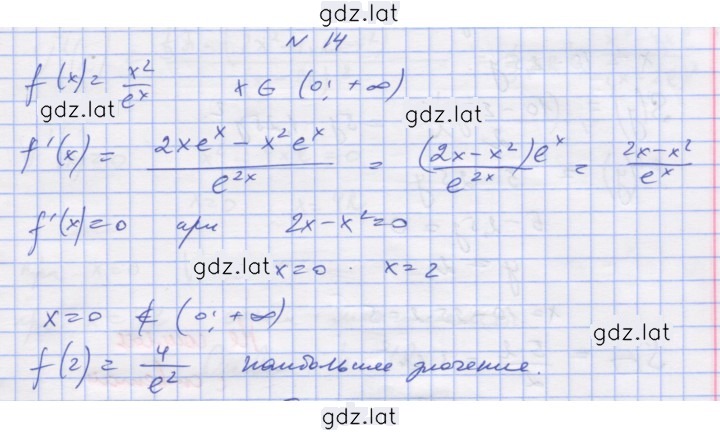 gdz.lat
№ 14
f(x) = x²/eˣ x ∈ (0; +∞)
gdz.lat gdz.lat
f'(x) = (2xeˣ − x²eˣ)/e²ˣ = (2x−x²)eˣ/e²ˣ = (2x−x²)/eˣ
f'(x)=0 при 2x−x²=0
gdz.lat x=0 x=2
x=0 ∉ (0; +∞)
gdz.lat
f(2) = 4/e² наибольшее значение.
gdz.lat